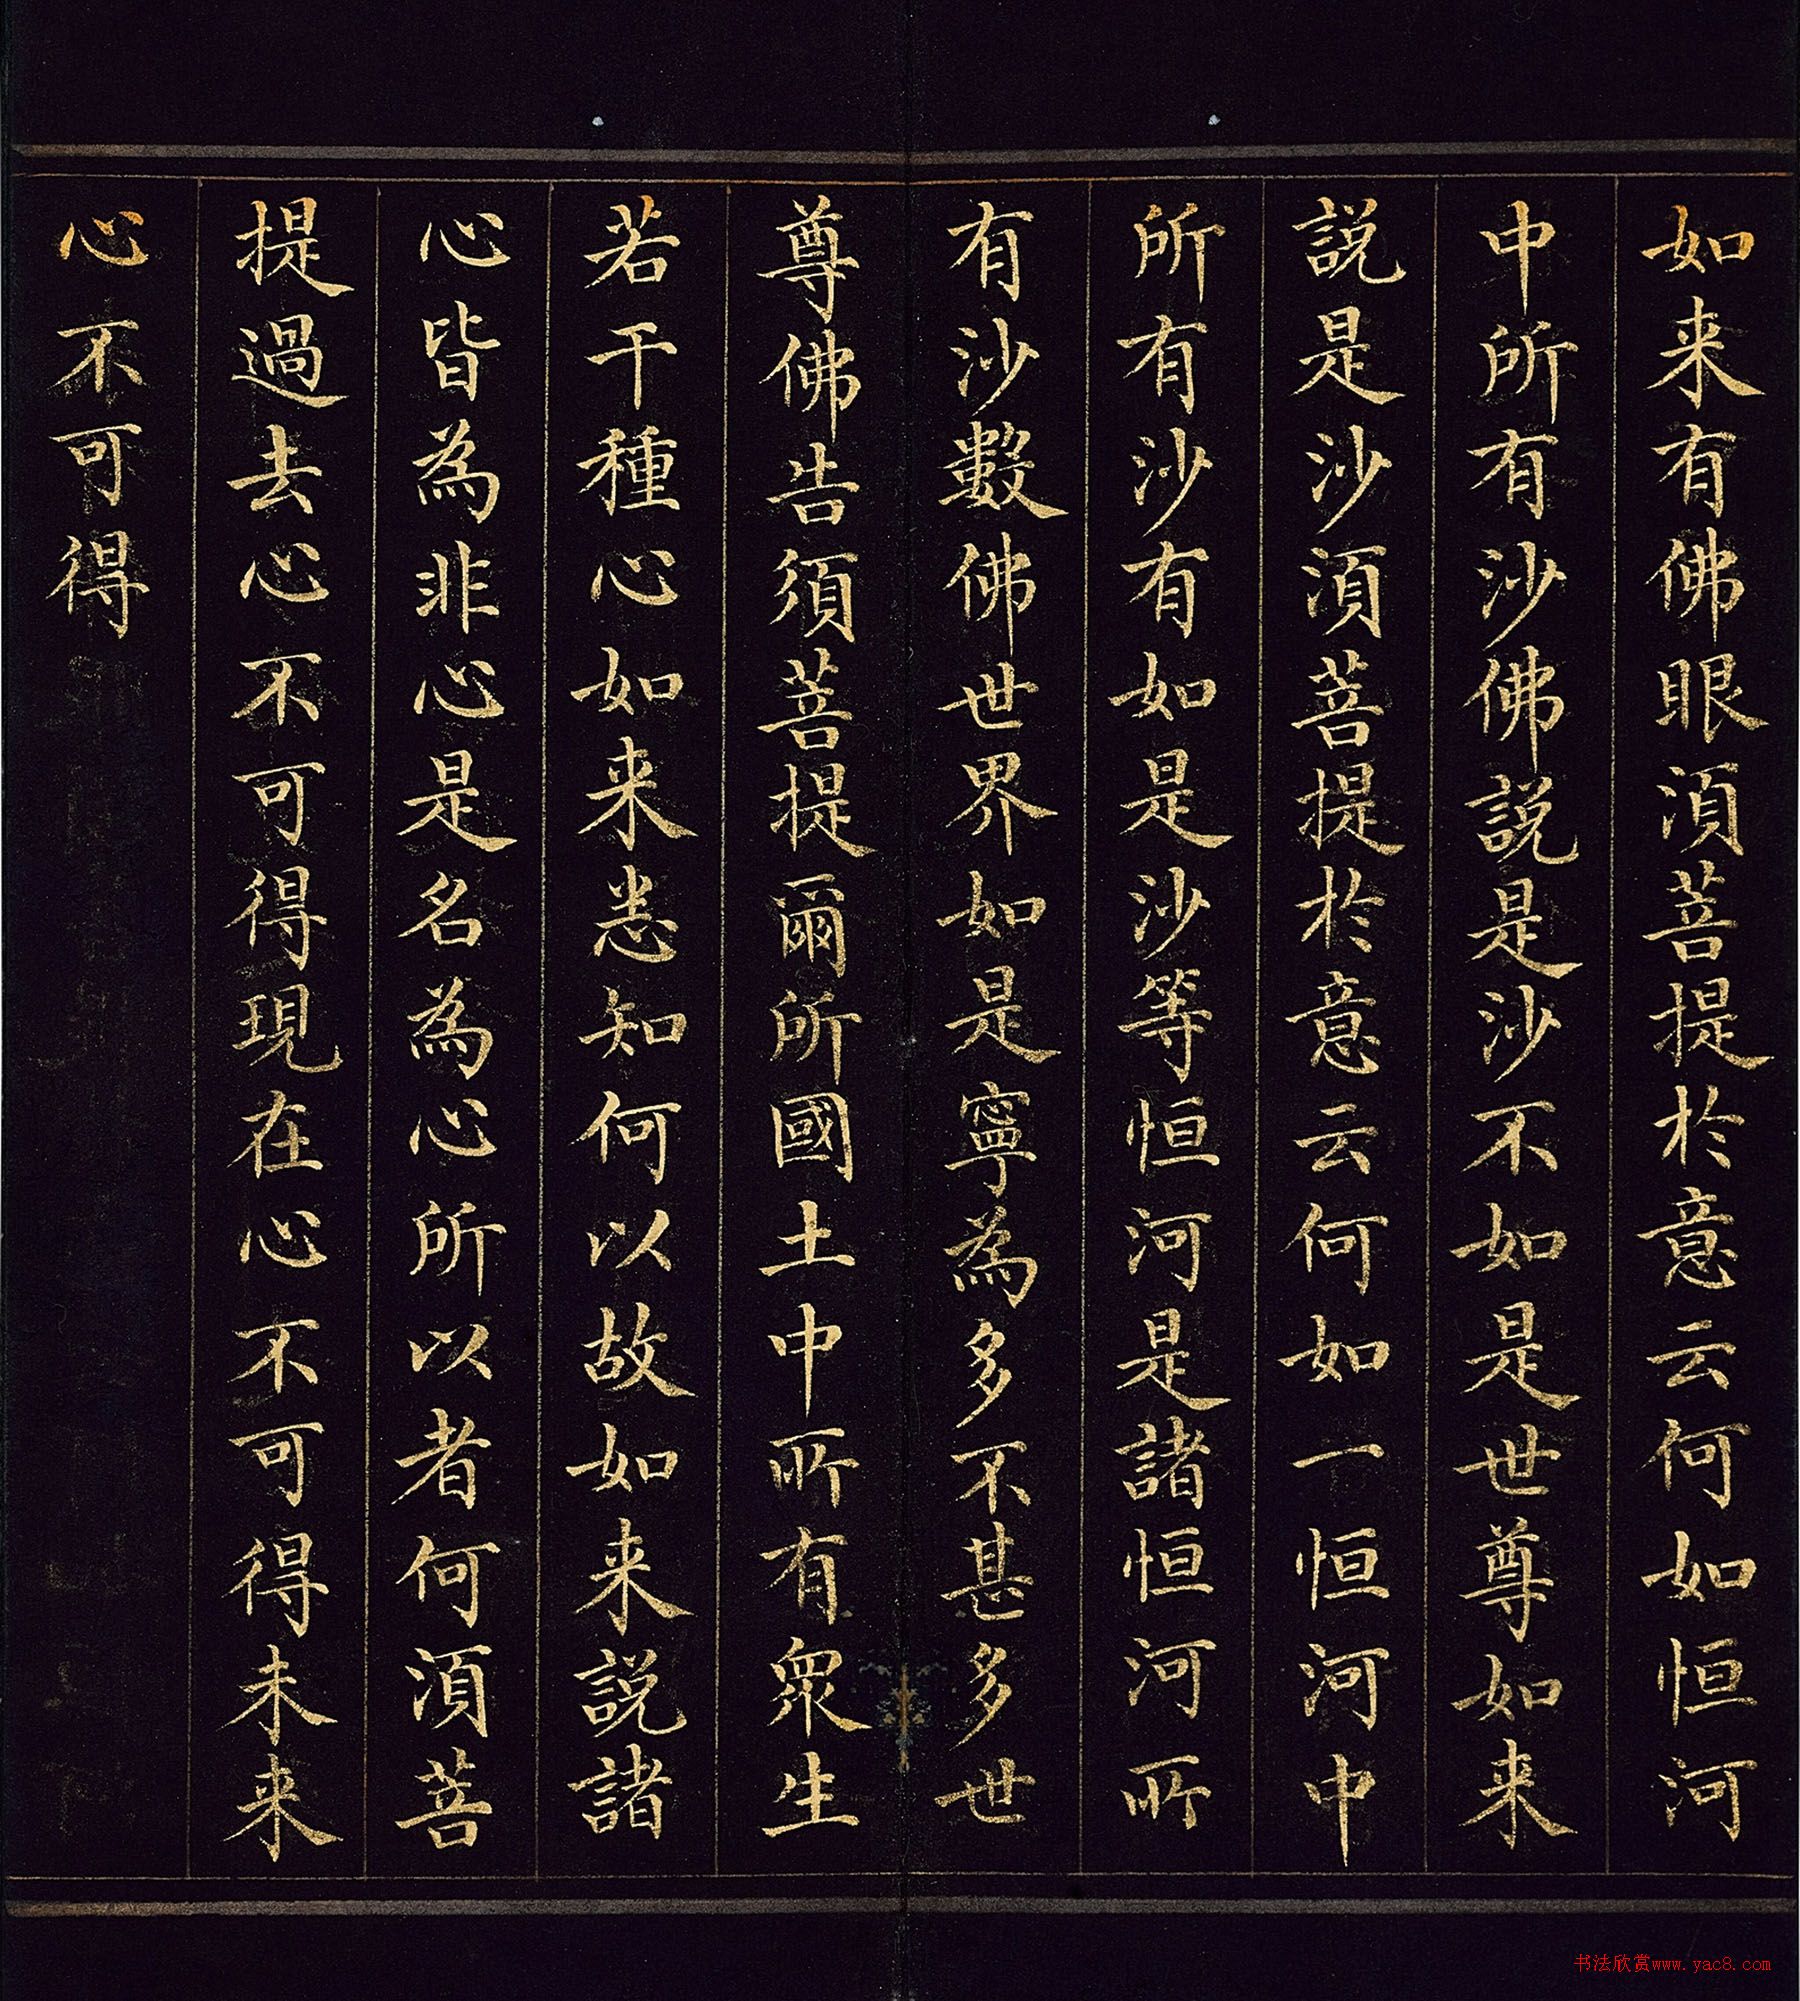 如来有佛眼須菩提於意云何如恒河
中所有沙佛説是沙不如是世尊如来
説是沙須菩提於意云何如一恒河中
所有沙有如是沙等恒河是諸恒河所
有沙數佛世界如是寧為多不甚多世
尊佛告須菩提爾所國土中所有眾生
若干種心如来悉知何以故如来説諸
心皆為非心是名為心所以者何須菩
提過去心不可得現在心不可得未来
心不可得
书法欣赏www.yac8.com